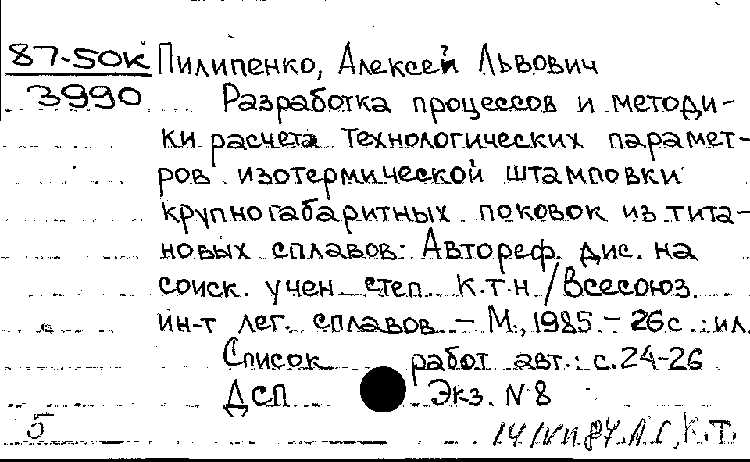 87-50к Пилипенко, Алексей Львович
3990 Разработка процессов и методи-
ки расчета технологических парамет-
ров изотермической штамповки
крупногабаритных поковок из тита-
новых сплавов: Автореф. дис. на
соиск. учен. степ. к.т.н./Всесоюз.
ин-т лег. сплавов. - М., 1985. - 26с.: ил.
Список работ авт.: с.24-26
ДСП Экз. №8
5 К.Т.